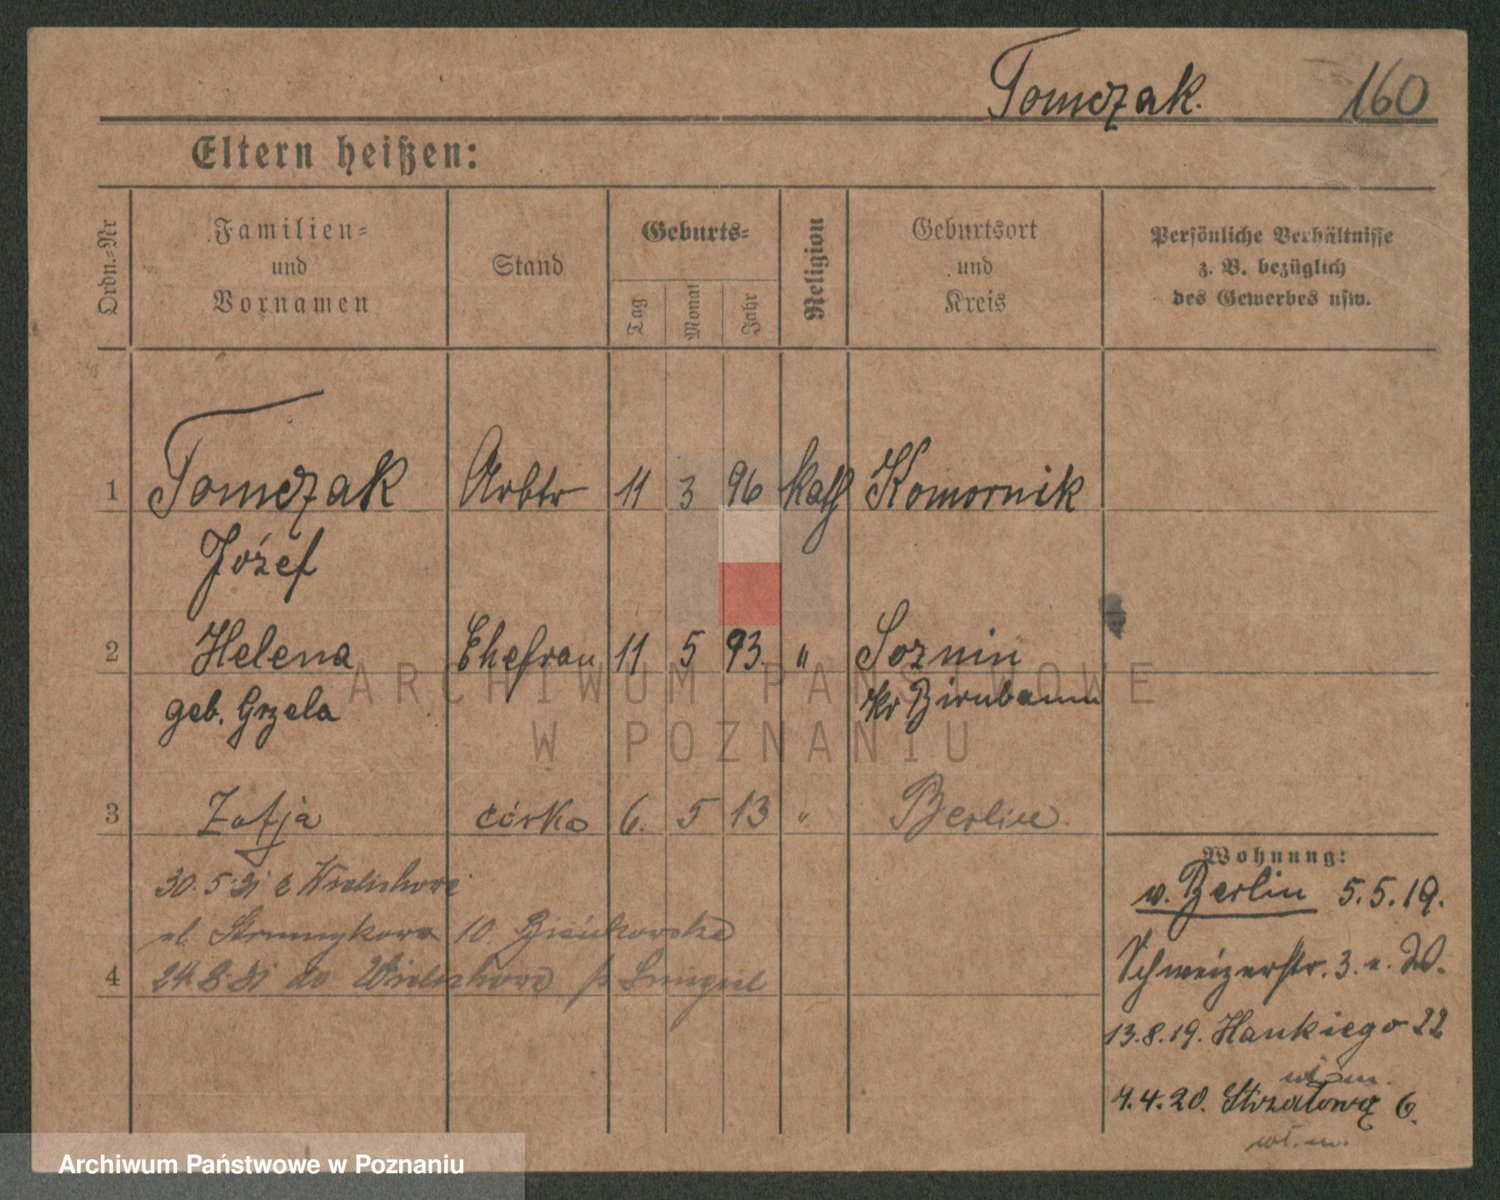 Tomczak. 160
Eltern heißen:
Ordn.-Nr
Familien-
und
Vornamen
Stand
Geburts-
Tag
Monat
Jahr
Religion
Geburtsort
und
Kreis
Persönliche Verhältnisse
z. B. bezüglich
des Gewerbes usw.
1 Tomczak Arbtr 11 3 96 kath Komornik
Józef
2 Helena Ehefrau 11 5 93 " Soznin
geb. Grzela Kr Birnbaum
3 Zofja córka 6. 5 13 " Berlin.
30. 5. 21 z
10.
4 24. 8. 21 do
Wohnung:
v. Berlin 5.5.19.
Schweizerstr. 3. u. W.
13.8.19. Haukiego 22
wł. m.
7.4.20. Strzałowa 6.
wł. m.
ARCHIWUM PAŃSTWOWE
W POZNANIU
Archiwum Państwowe w Poznaniu